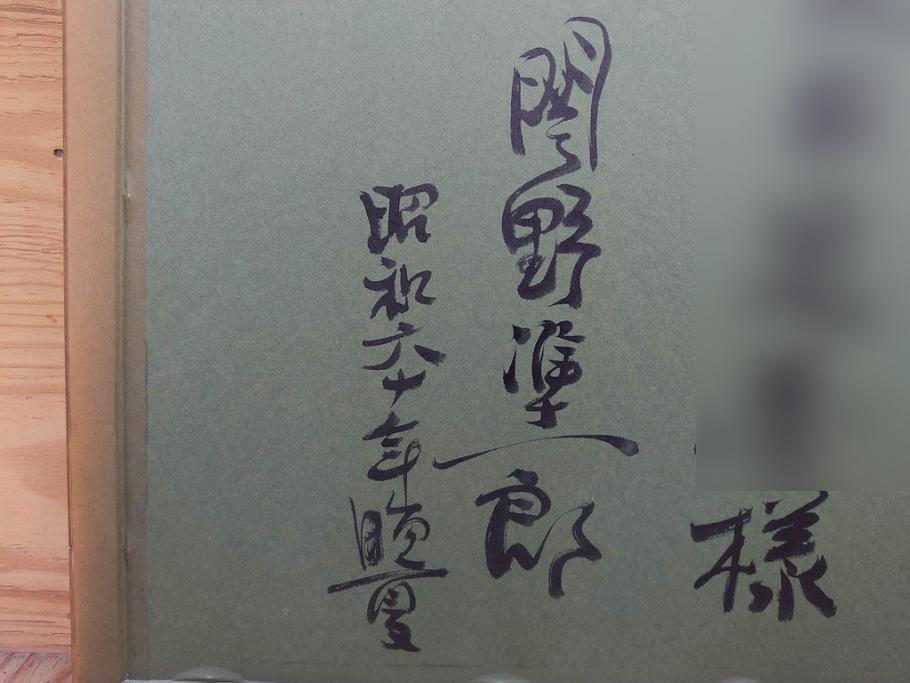 様
関野凖一郎
昭和六十年晩夏